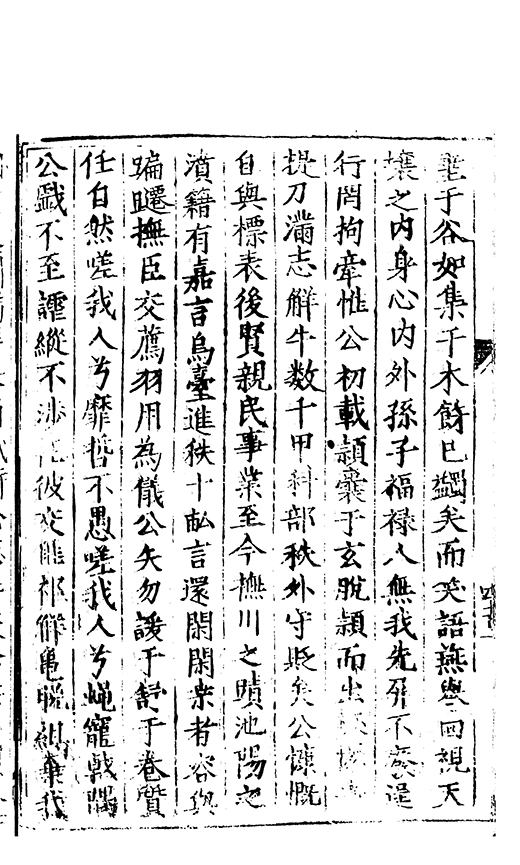 于谷如集于木餘已蠲矣而笑語無與回視天
壤之内身心内外孫子福禄人無我先不遑
行罔拘牽惟公初載頴囊于玄脱頴而出
提刀滿志解牛数千甲科部秩外守貶矣公慷慨
自與標表後賢親民事業至今撫川之蹟池陽之
濆籍有嘉言烏臺進秩十畝言還閑閑桒者容與
蹁躚撫臣交薦羽用為儀公矢勿諼于舒于卷質
任自然嗟我人兮靡哲不愚嗟我人兮蝇寵戟隅
公戯不至謔縱不渉彼交匪我